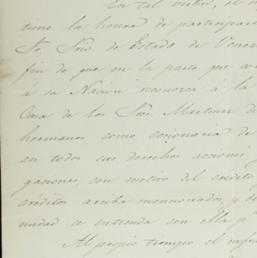 En tal motivo, el in
tiene la honra de participar
Sr. Srio. de Estado de Venez
fin de que en la parte que
á su Nacion reconozca á la
Casa de los Sres Martinez d
hermanos como cesionaria de
en todos sus derechos acciones
gaciones, con motivo del crédito
créditos arriba mencionados, y d
nidad se entienda con ella p
Al propio tiempo, el infra